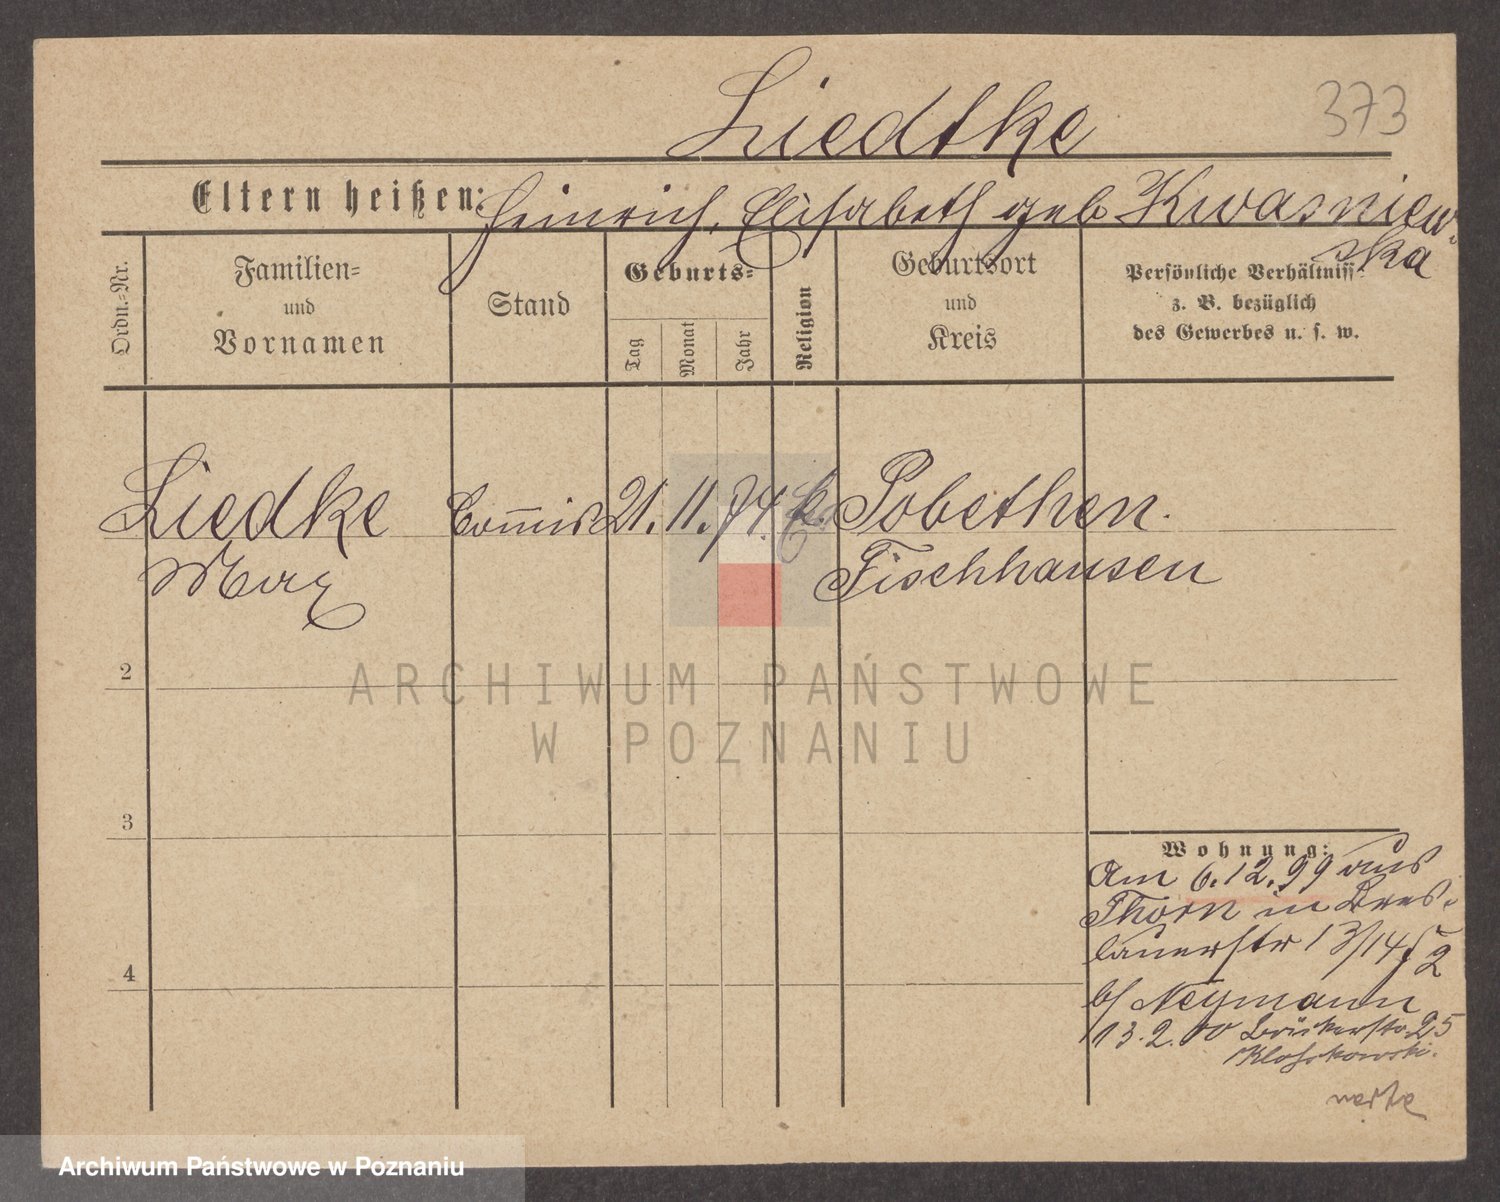 373
Liedtke
Eltern heißen: Heinrich, Elisabeth geb Kwasniew-
ska
Ordn.-Nr.
Familien-
und
Vornamen
Stand
Geburts-
Tag
Monat
Jahr
Religion
Geburtsort
und
Kreis
Persönliche Verhältniss
z. B. bezüglich
des Gewerbes u. s. w.
Liedke Com̅is 21. 11. 74. k. Pobethen.
Max Fischhausen
2
3
4
Wohnung:
Am 6.12.99 aus
Thorn in Bres-
lauerstr 13/14
b/ Neymann
13.2.00 Bäckerstr. 25
ARCHIWUM PAŃSTWOWE
W POZNANIU
Archiwum Państwowe w Poznaniu